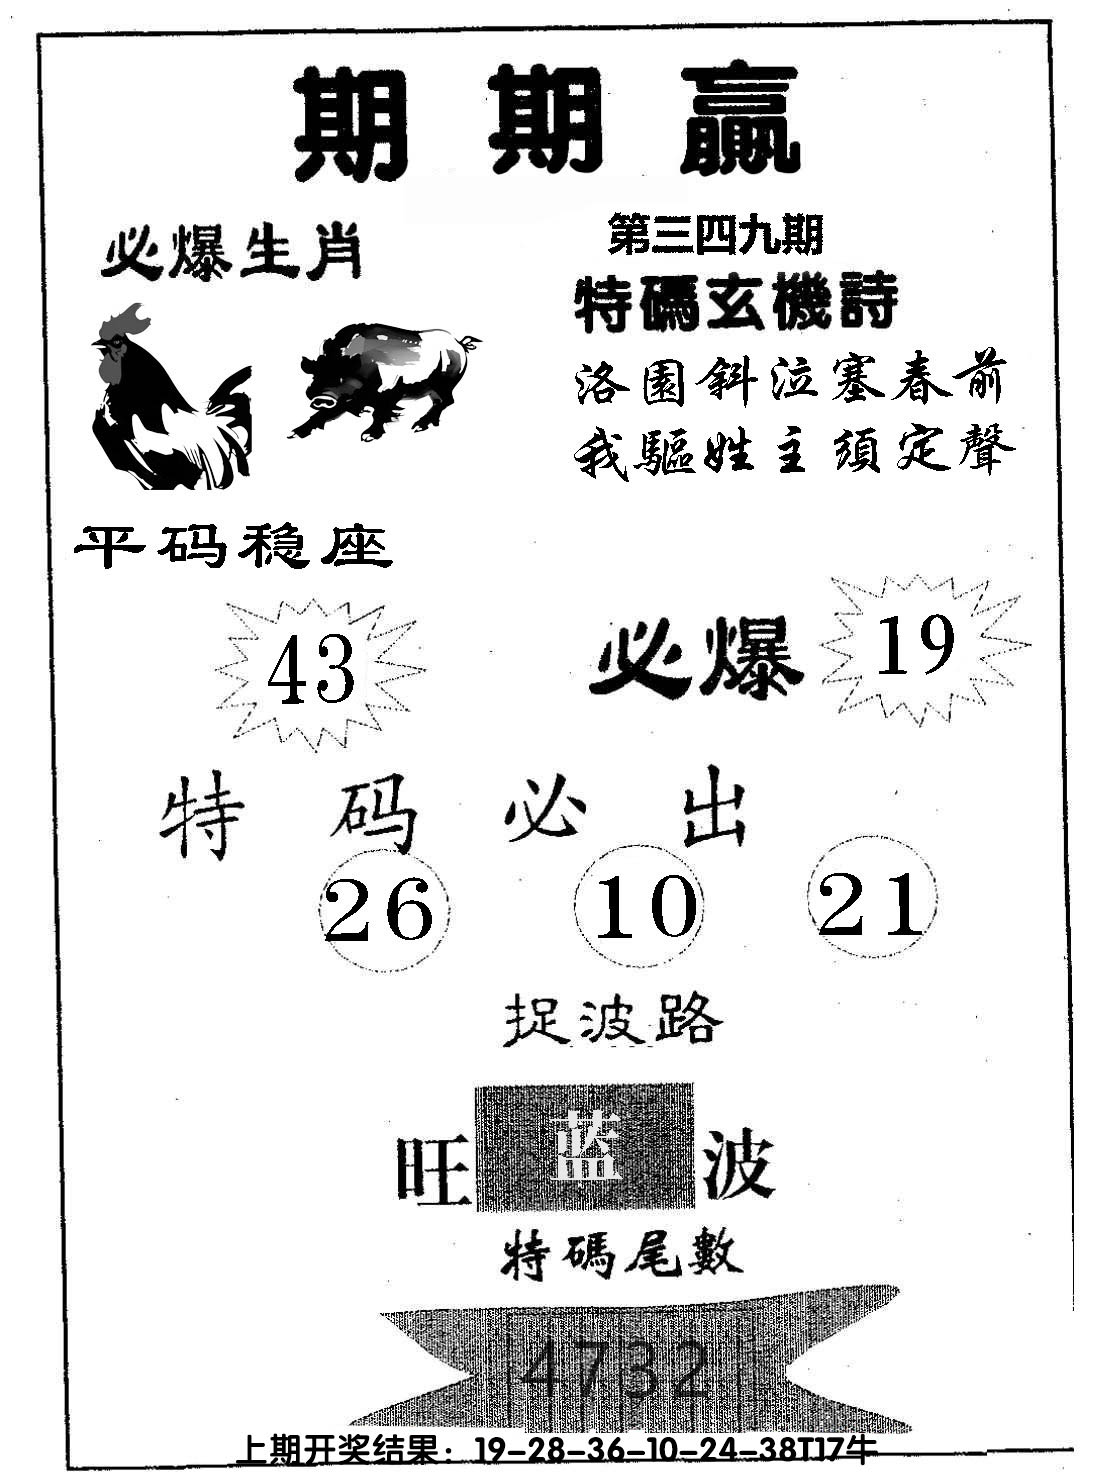 期期赢
必爆生肖
第三四九期
特碼玄機詩
洛園斜泣塞春前
我驅姓主須定聲
平码稳座
43
必爆 19
特码必出
26 10 21
捉波路
旺 蓝 波
特碼尾數
4732
上期开奖结果：19-28-36-10-24-38T17牛